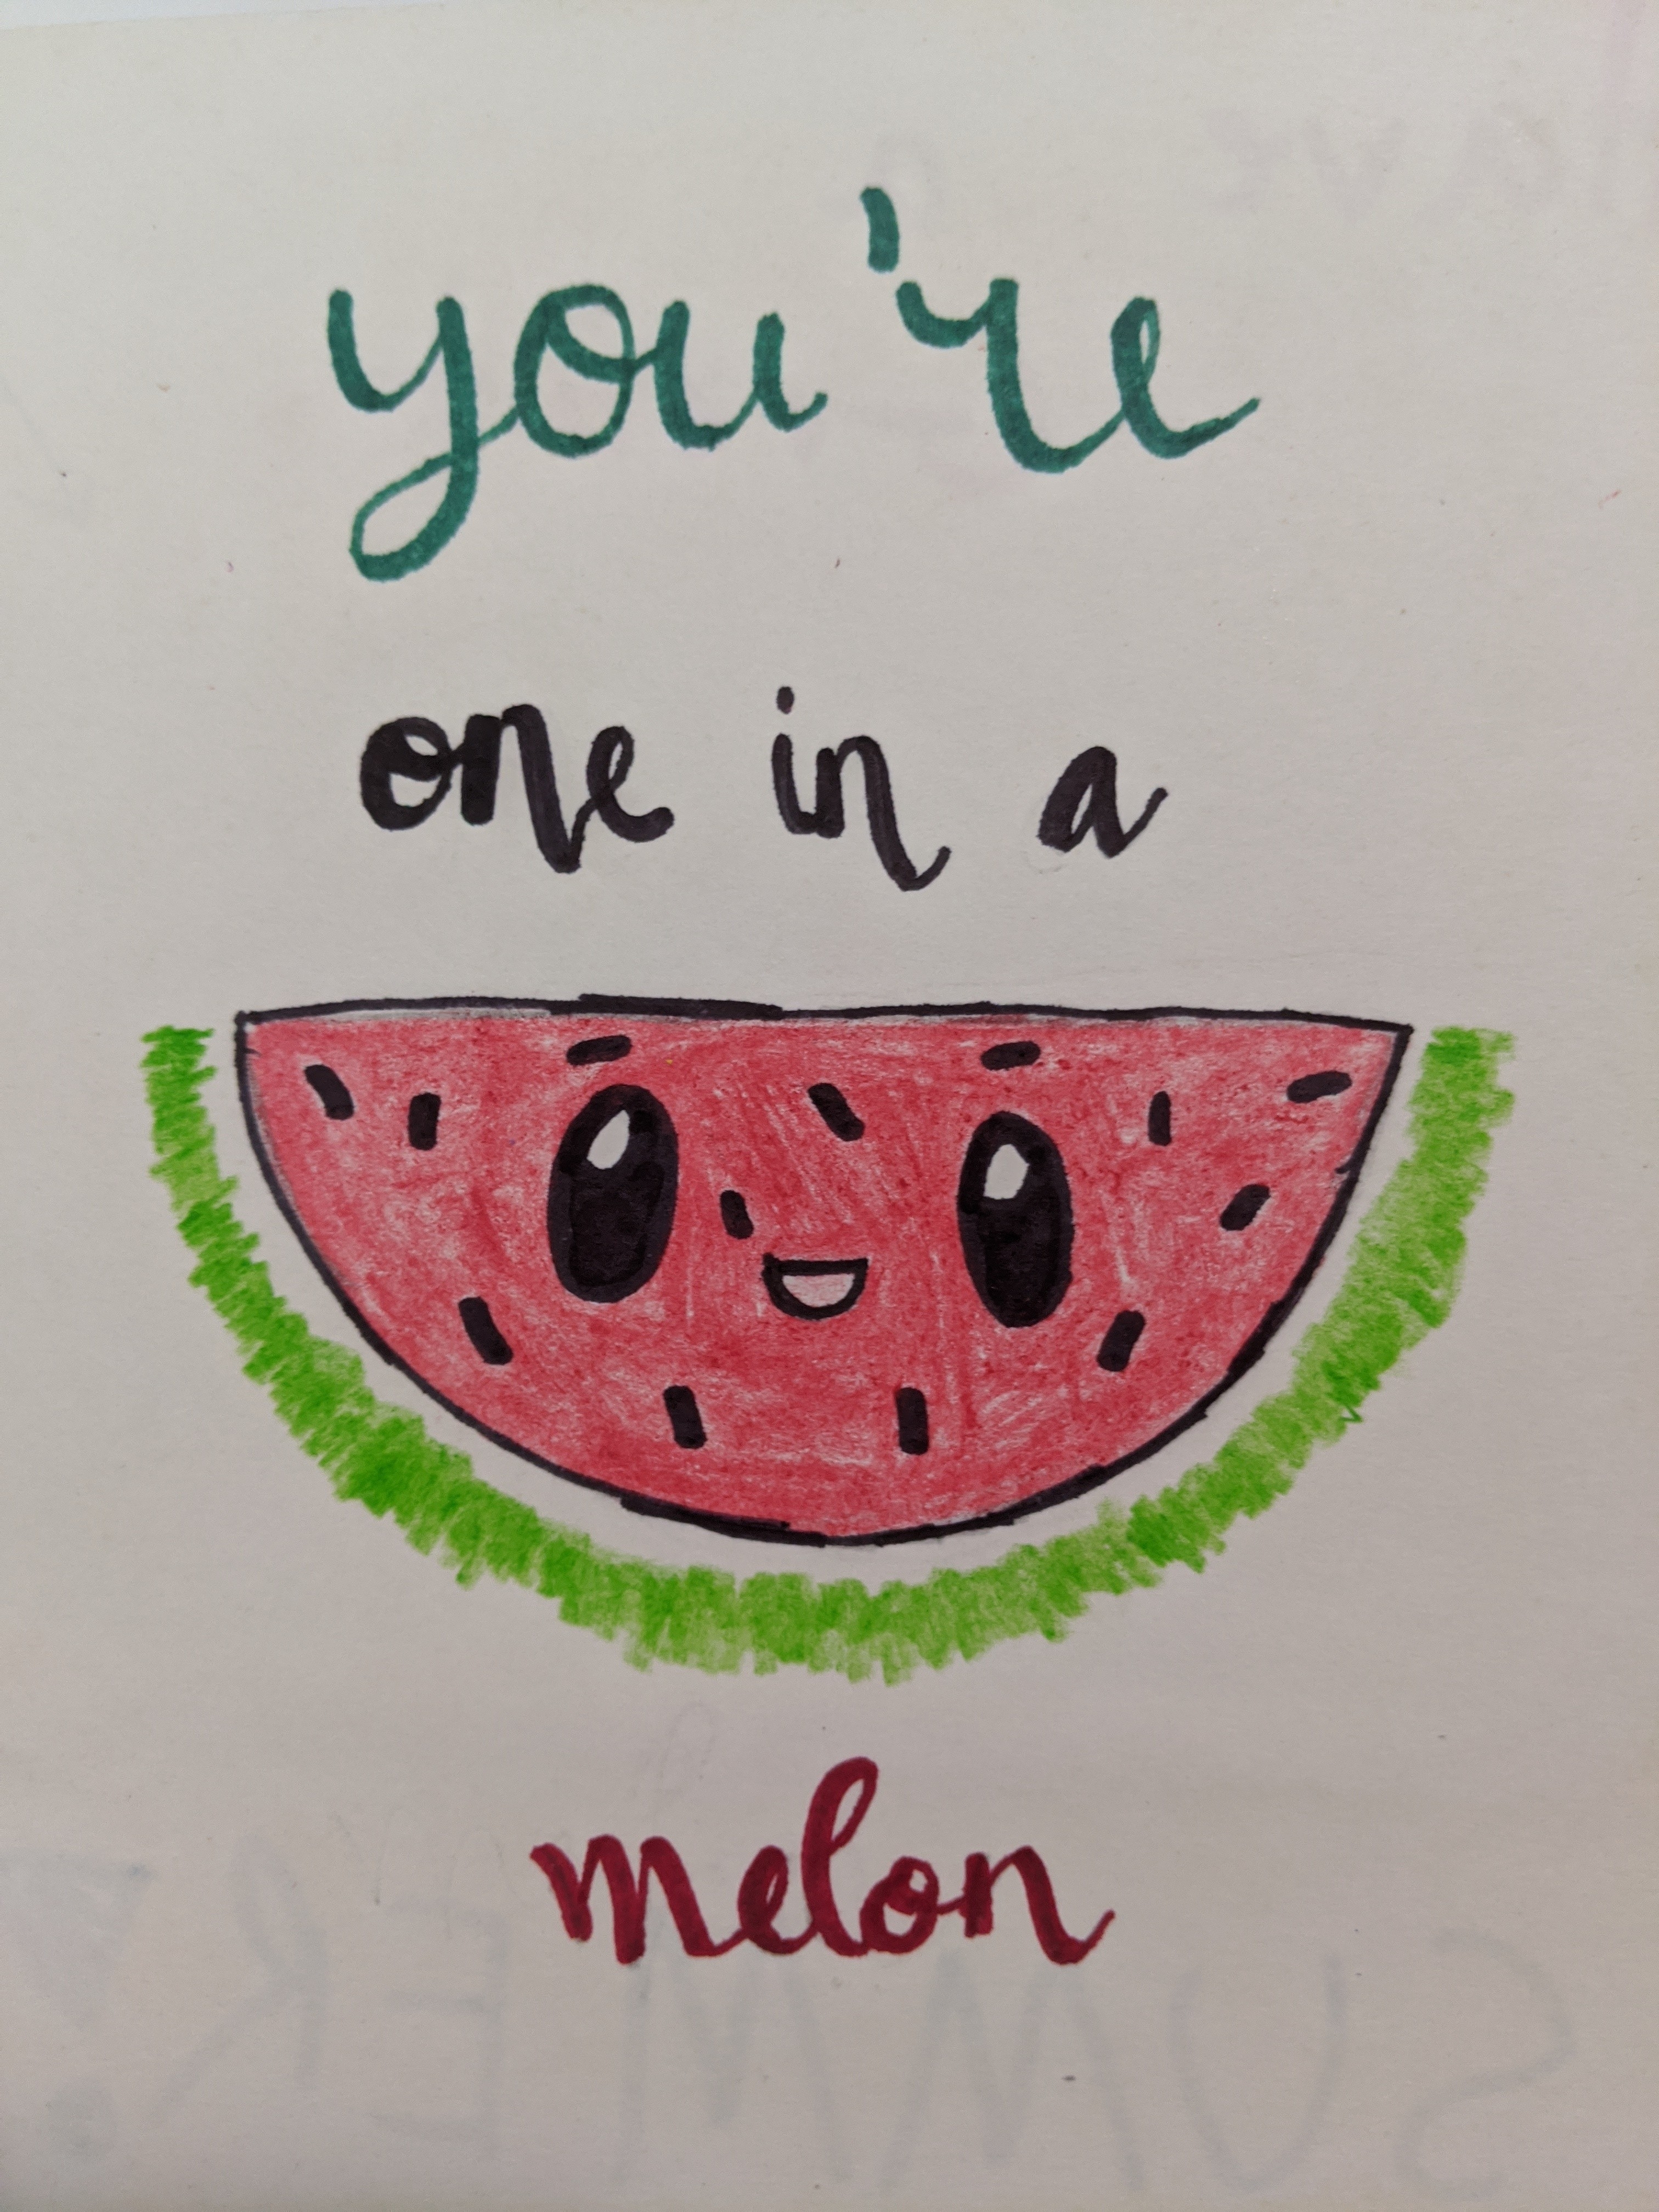 you're
one in a
melon
SUMMER